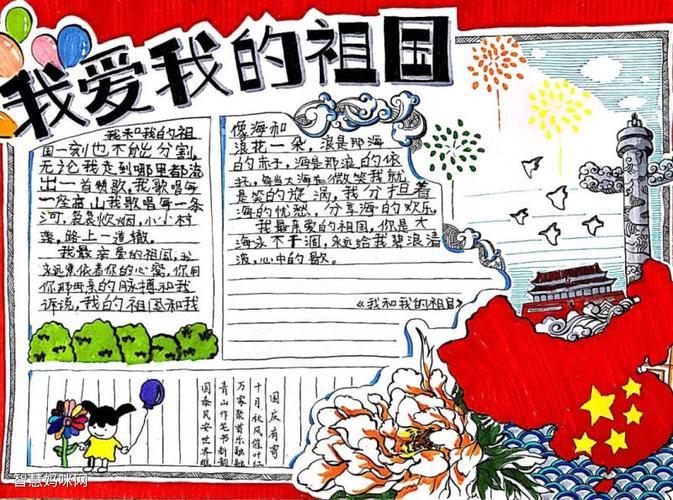 我爱我的祖国
我和我的祖
国一刻也不能分割,
无论我走到哪里都流
出一首赞歌,我歌唱每
一座高山我歌唱每一条
河,袅袅炊烟,小小村
落,路上一道辙。
我最亲爱的祖国,我
永远紧依着你的心窝,你用
你那母亲的脉搏和我
诉说,我的祖国和我
像海和
浪花一朵,浪是那海
的赤子,海是那浪的依
托,每当大海在微笑我就
是笑的旋涡,我分担着
海的忧愁,分享海的欢乐
我最亲爱的祖国,你是大
海永不干涸,永远给我碧浪清
波,心中的歌。
《我和我的祖国》
国庆有寄
十月秋风催叶红
万家聚首乐融融
青山作笔书新韵
国泰民安世界
智慧妈咪网